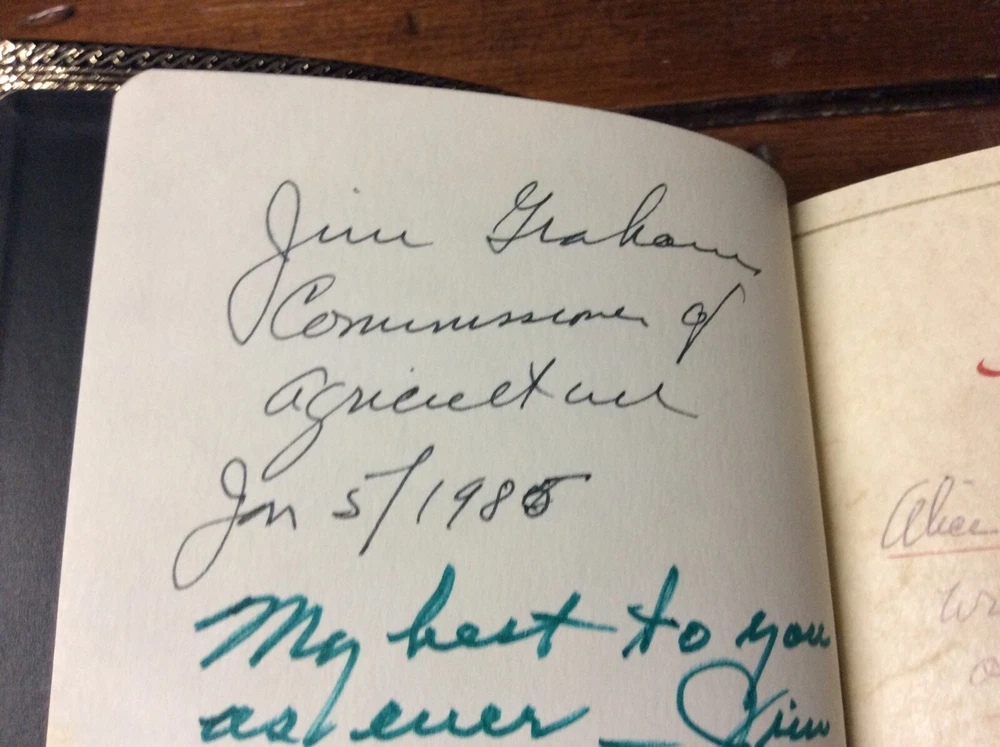 Jim Graham
Commissioner of
Agriculture
Jan 5/1985
My best to you
as ever — Jim
Alice